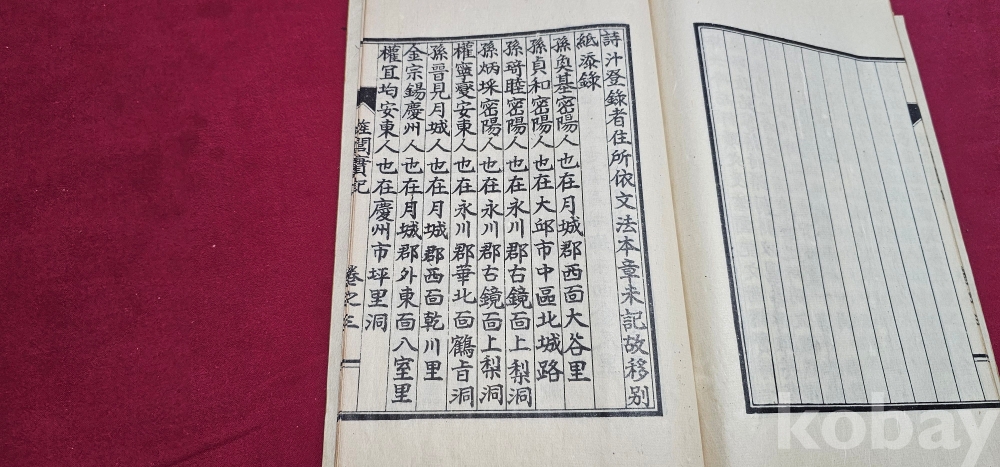 詩汁登錄者住所依文法本章未記故移別
紙添錄
孫奐基密陽人也在月城郡西面大谷里
孫貞和密陽人也在大邱市中區北城路
孫琦睦密陽人也在永川郡古鏡面上梨洞
孫炳埰密陽人也在永川郡古鏡面上梨洞
權寧夔安東人也在永川郡華北面鶴旨洞
孫晉見月城人也在月城郡西面乾川里
金宗錫慶州人也在月城郡外東面八室里
權宜均安東人也在慶州市坪里洞
閭實記
卷之三
kobay